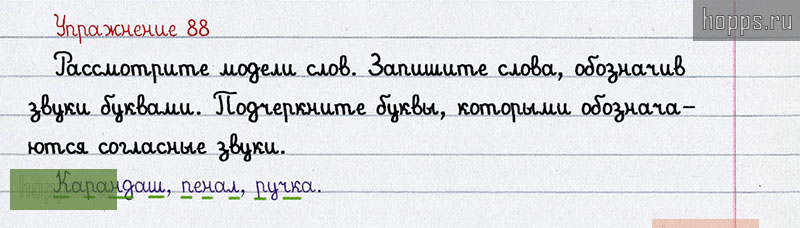 Упражнение 88
hopps.ru
Рассмотрите модели слов. Запишите слова, обозначив
звуки буквами. Подчеркните буквы, которыми обознача-
ются согласные звуки.
Карандаш, пенал, ручка.